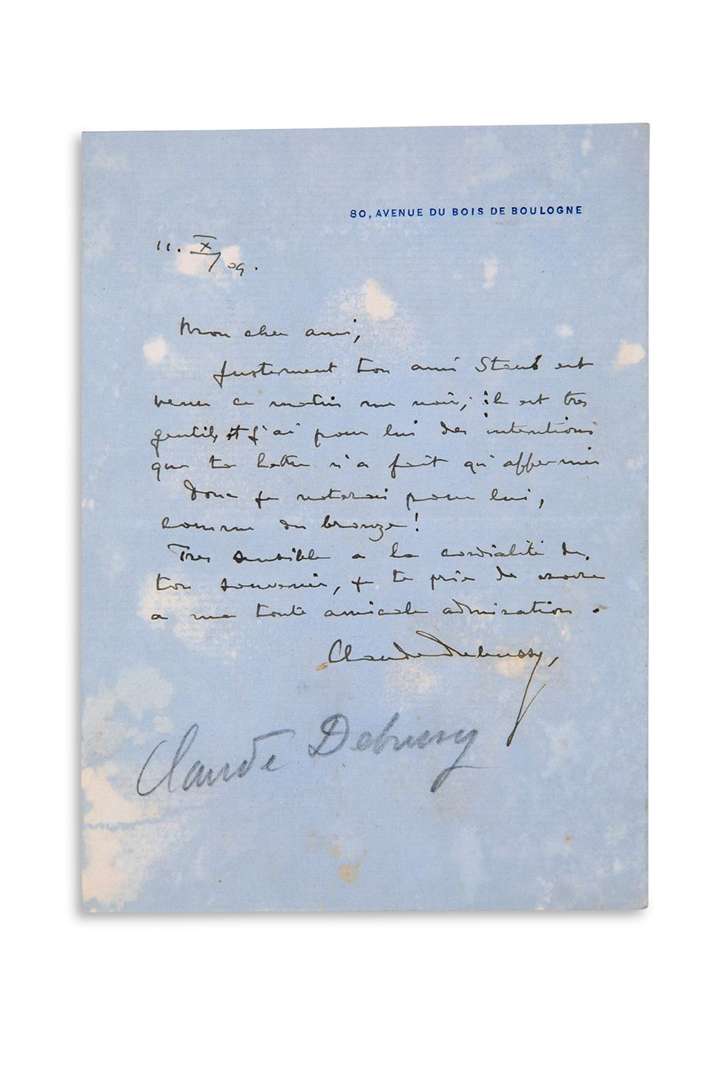 80, AVENUE DU BOIS DE BOULOGNE
11. X/09.
Mon cher ami,
Justement ton ami Staub est
venu ce matin me voir; il est très
gentil, et j'ai pour lui des intentions
que ta lettre n'a fait qu'affermir
Donc je voterai pour lui,
comme du bronze!
Très sensible a la cordialité de
ton souvenir, je te prie de croire
a ma toute amicale admiration.
Claude Debussy,
Claude Debussy